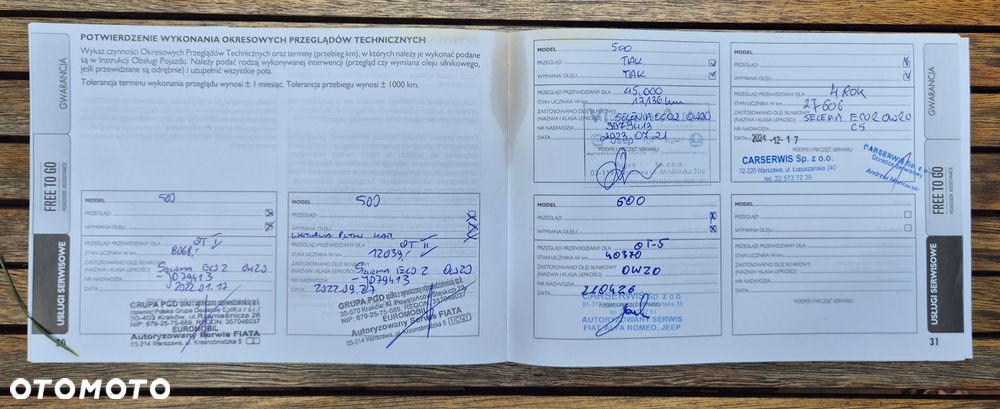 POTWIERDZENIE WYKONANIA OKRESOWYCH PRZEGLĄDÓW TECHNICZNYCH
Wykaz czynności Okresowych Przeglądów Technicznych oraz terminy (przebieg km), w których należy je wykonać podane
są w Instrukcji Obsługi Pojazdu. Należy podać rodzaj wykonywanej interwencji (przegląd czy wymiana oleju silnikowego,
jeśli przewidziane są odrębnie) i uzupełnić wszystkie pola.
Tolerancja terminu wykonania przeglądu wynosi ± 1 miesiąc. Tolerancja przebiegu wynosi ± 1000 km.
GWARANCJA
FREE TO GO
ROADSIDE ASSISTANCE
USŁUGI SERWISOWE
MODEL 500
PRZEGLĄD
WYMIANA OLEJU
PRZEGLĄD PRZEWIDZIANY DLA OT I
STAN LICZNIKA W km 8068,-
ZASTOSOWANO OLEJ SILNIKOWY
(NAZWA I KLASA LEPKOŚCI) Selenia ECO2 0W20
NR NADWOZIA J079413
DATA 2022.01.17
GRUPA PGD
30-403 Kraków, ul. Rzemieślnicza 26
NIP: 679-25-75-669, REGON: 357046037
EUROMOBIL
Autoryzowany Serwis FIATA
03-214 Warszawa, ul. Krasnobrodzka 5
MODEL 500
PRZEGLĄD
WYMIANA OLEJU
PRZEGLĄD PRZEWIDZIANY DLA OT II
STAN LICZNIKA W km 12039,-
ZASTOSOWANO OLEJ SILNIKOWY
(NAZWA I KLASA LEPKOŚCI) Selenia ECO2 0W20
NR NADWOZIA J079413
DATA 2022.09.27
GRUPA PGD
NIP: 679-25-75-669, REGON: 357046037
EUROMOBIL
Autoryzowany Serwis FIATA
03-214 Warszawa, ul. Krasnobrodzka 5
MODEL 500
PRZEGLĄD TAK
WYMIANA OLEJU TAK
PRZEGLĄD PRZEWIDZIANY DLA 45.000
STAN LICZNIKA W km 17136 km
ZASTOSOWANO OLEJ SILNIKOWY
(NAZWA I KLASA LEPKOŚCI) SELENIA ECO2 0W20
NR NADWOZIA J079413
DATA 2023.07.21
Jeep
PODPIS I PIECZĘĆ SERWISU
Sp. z o.o.
Modlińska 206
MODEL
PRZEGLĄD
WYMIANA OLEJU
PRZEGLĄD PRZEWIDZIANY DLA 4 ROK
STAN LICZNIKA W km 27606
ZASTOSOWANO OLEJ SILNIKOWY
(NAZWA I KLASA LEPKOŚCI) SELENIA ECO2 0W20
NR NADWOZIA C5
DATA 2024 -12- 17
PODPIS I PIECZĘĆ SERWISU
CARSERWIS Sp. z o.o.
02-220 Warszawa, ul. Łopuszańska 54C
tel. 22 573 72 39
CARSERWIS Sp. z o.o.
Doradca Serwisowy
MODEL 500
PRZEGLĄD
WYMIANA OLEJU
PRZEGLĄD PRZEWIDZIANY DLA OT-5
STAN LICZNIKA W km 40370
ZASTOSOWANO OLEJ SILNIKOWY
(NAZWA I KLASA LEPKOŚCI) 0W20
NR NADWOZIA
DATA 210426
CARSERWIS Sp. z o.o.
AUTORYZOWANY SERWIS
FIAT ALFA ROMEO, JEEP
MODEL
PRZEGLĄD
WYMIANA OLEJU
PRZEGLĄD PRZEWIDZIANY DLA
STAN LICZNIKA W km
ZASTOSOWANO OLEJ SILNIKOWY
(NAZWA I KLASA LEPKOŚCI)
NR NADWOZIA
DATA
PODPIS I PIECZĘĆ SERWISU
GWARANCJA
FREE TO GO
ROADSIDE ASSISTANCE
USŁUGI SERWISOWE
30
31
OTOMOTO